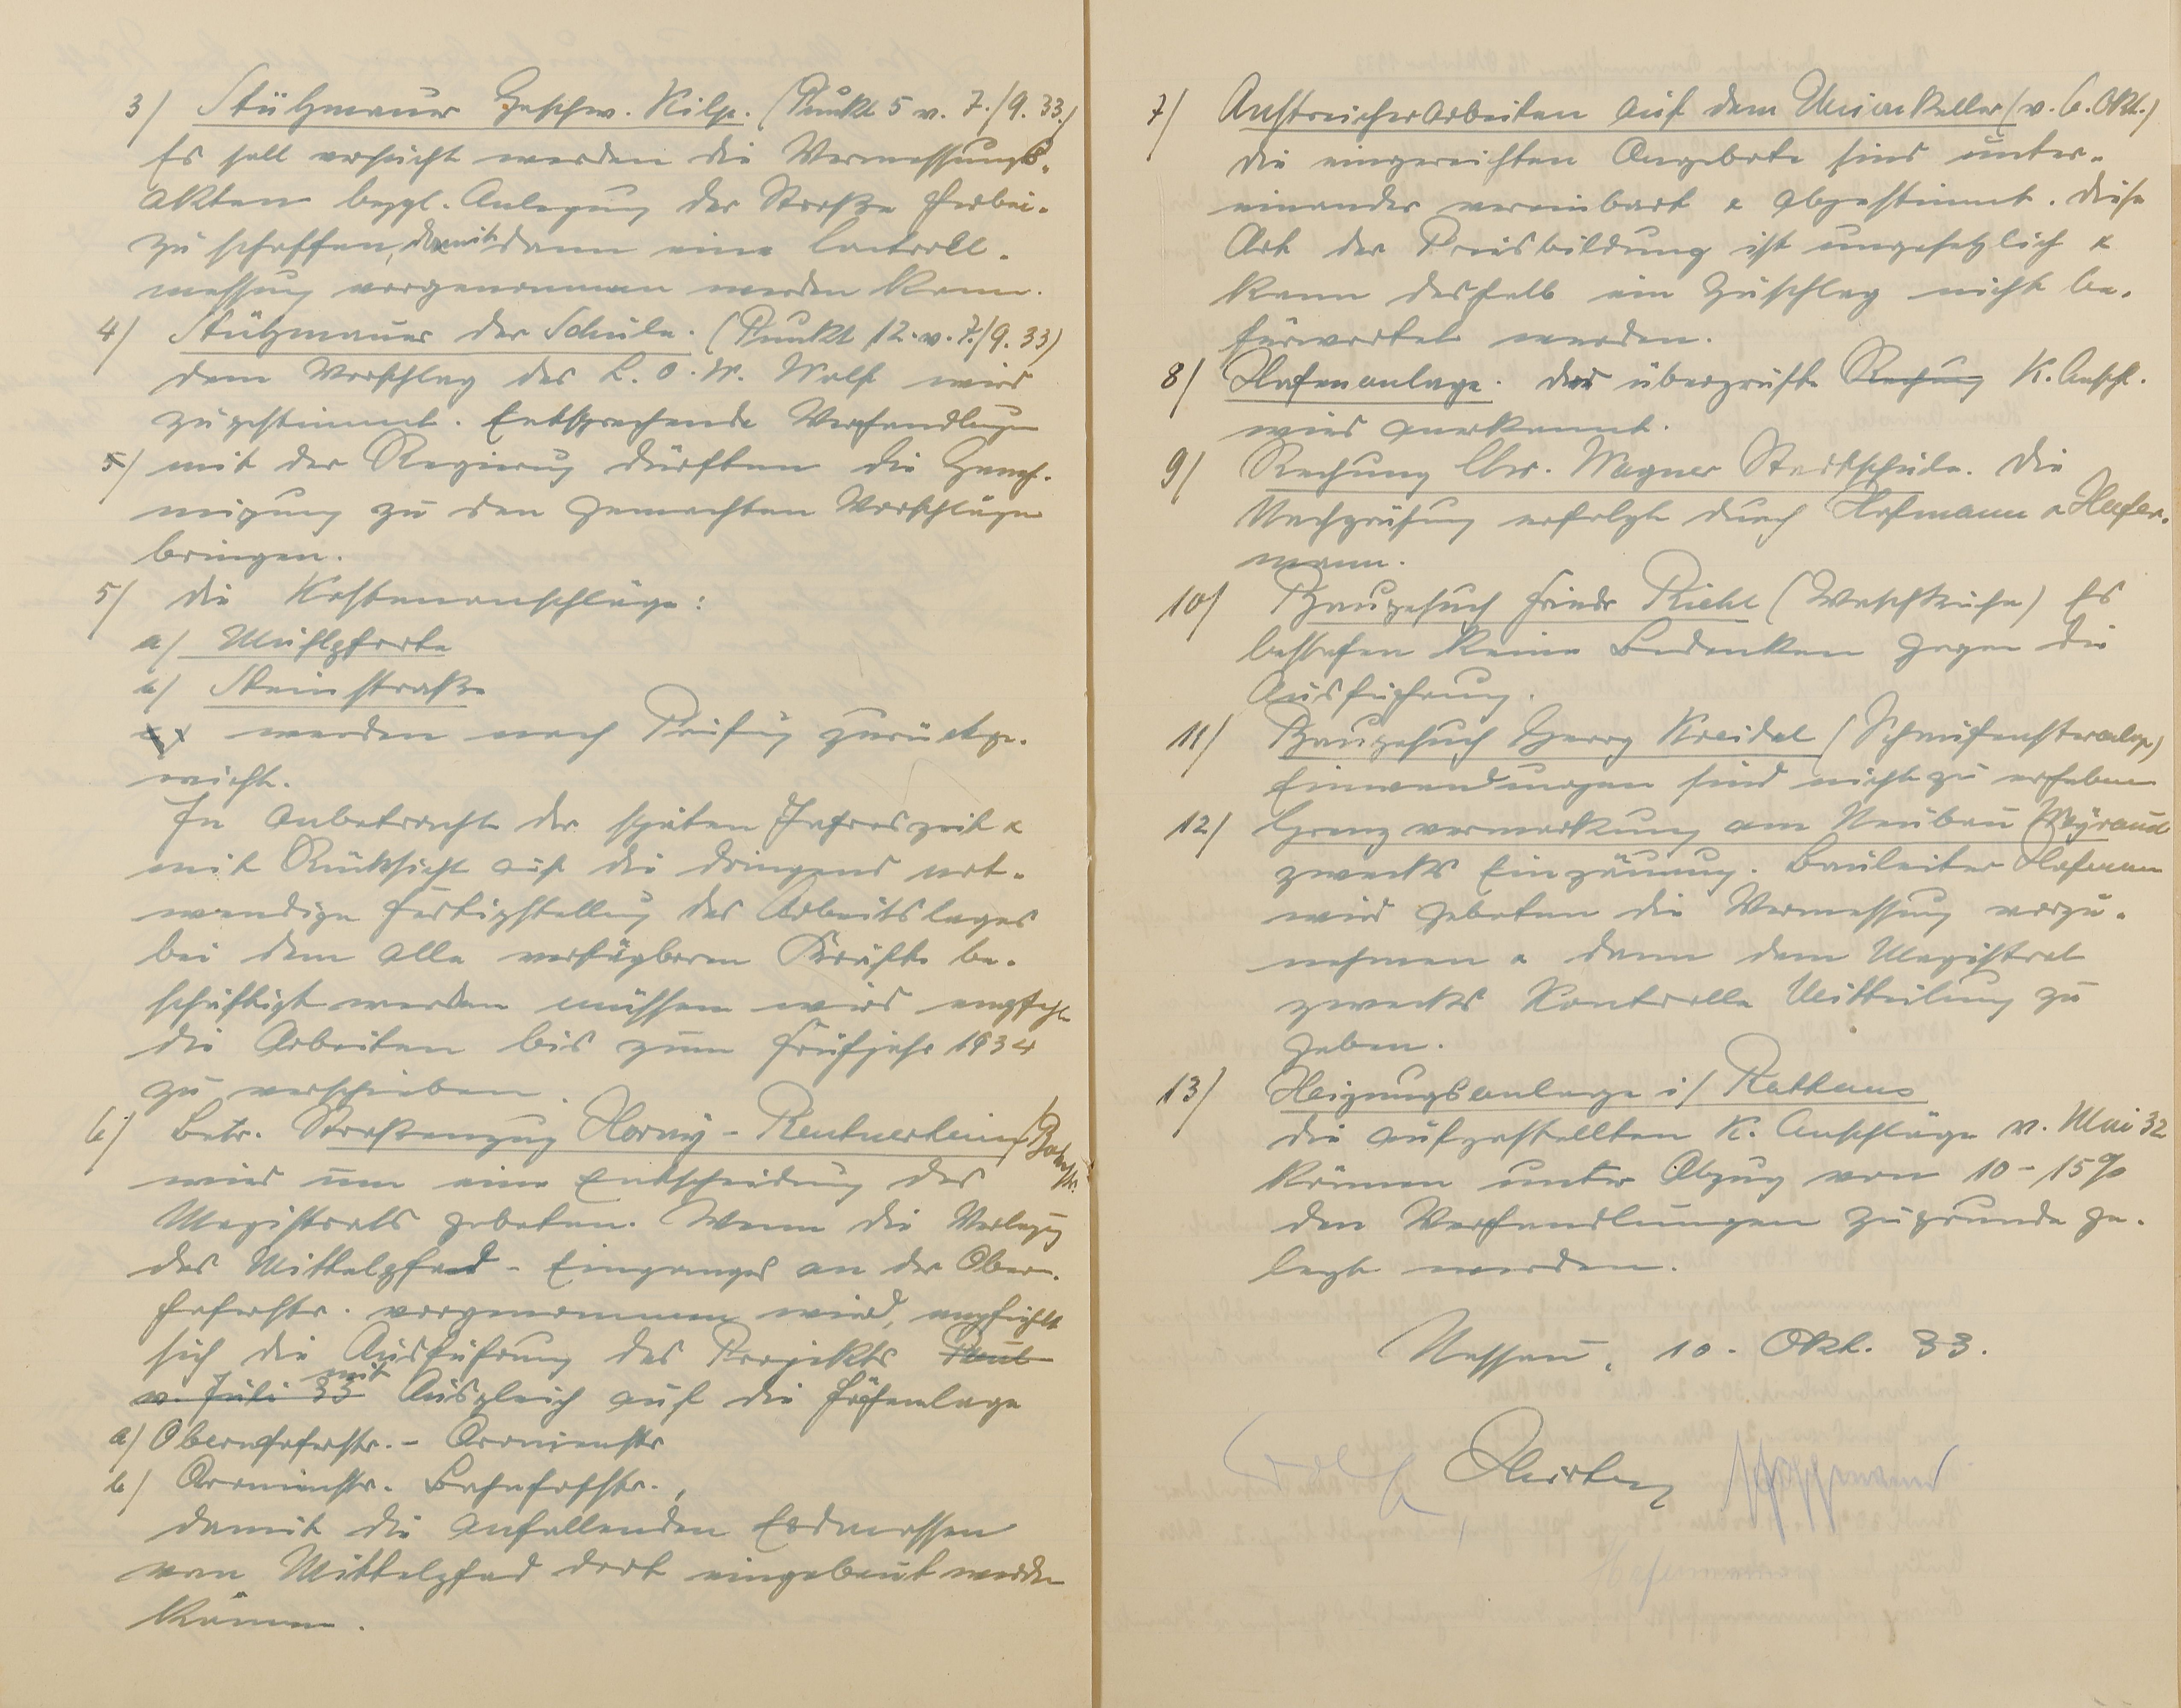 3) Stützmauer Geschw. Kilp. (Punkt 5 v. 7./9. 33.)
Es soll versucht werden die Vermessungs-
akten bezgl. Anlegung der Straße herbei-
zu schaffen, damit dann eine Controll-
messung vorgenommen werden kann.
4) Stützmauer der Schule. (Punkt 12. v. 7./9. 33)
Dem Vorschlag des L. O. W. Wolf wird
zugestimmt. Entsprechende Verhandlungen
5) mit der Regierung dürften die Geneh-
migung zu den gemachten Vorschlägen
bringen.
5) Die Kostenanschläge:
a) Mühlpforte
b) Steinstraße
werden nach Prüfung zurückge-
reicht.
In Anbetracht der späten Jahreszeit &
mit Rücksicht auf die dringend not-
wendige Fertigstellung des Arbeitslagers
bei dem alle verfügbaren Kräfte be-
schäftigt werden müssen wird empfohlen
die Arbeiten bis zum Frühjahr 1934
zu verschieben.
6) Betr. Straßenzug Horny - Rentnerheim (Bahnhfstr.
wird um eine Entscheidung des
Magistrats gebeten. Wenn die Verlegung
des Mittelpfad - Einganges an der Obern-
hoferstr. vorgenommen wird, empfiehlt
sich die Ausführung des Projekts Paul
v. Juli 33 mit Ausgleich auf die Höhenlage
a) Obernhoferstr. - Oranienstr
b) Oranienstr. Bahnhofstr.,
damit die anfallenden Erdmassen
von Mittelpfad dort eingebaut werden
können.
7) Anstreicherarbeiten auf dem Unionkeller (v. 6. Okt.)
Die eingereichten Angebote sind unter-
einander vereinbart & abgestimmt. Diese
Art der Preisbildung ist ungesetzlich &
kann deshalb ein Zuschlag nicht be-
fürwortet werden.
8) Hafenanlage. Der überprüfte Rechnung K. Anschl.
wird anerkannt.
9) Rechnung Chr. Wagner Stadtschule. Die
Nachprüfung erfolgt durch Hofmann & Hafer-
mann.
10) Baugesuch Friedr Piehl (Waschküche) Es
bestehen keine Bedenken gegen die
Ausführung.
11) Baugesuch Georg Kreidel (Schaufensteranlage)
Einwendungen sind nicht zu erheben
12) Grenzvermarkung am Neubau Weyrauch
zwecks Einzäunung. Bauleiter Hofmann
wird gebeten die Vermessung vorzu-
nehmen & dann dem Magistrat
zwecks Kontrolle Mitteilung zu
geben.
13) Heizungsanlage i/ Rathaus
Die aufgestellten K. Anschläge v. Mai 32
können unter Abzug von 10 - 15%
den Verhandlungen zugrunde ge-
legt werden.
Nassau, 10. Okt. 33.
Wolf
Hafermann